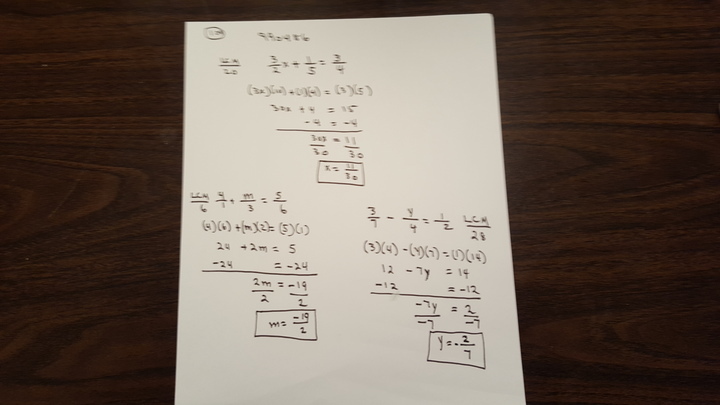 LCM/20 3/2x + 1/5 = 3/4
(3x)(10) + (1)(4) = (3)(5)
30x + 4 = 15
-4 = -4
30x/30 = 11/30
x = 11/30
LCM/6 4/1 + m/3 = 5/6
(4)(6) + (m)(2) = (5)(1)
24 + 2m = 5
-24 = -24
2m/2 = -19/2
m = -19/2
3/7 - y/4 = 1/2 LCM/28
(3)(4) - (y)(7) = (1)(14)
12 - 7y = 14
-12 = -12
-7y/-7 = 2/-7
y = -2/7